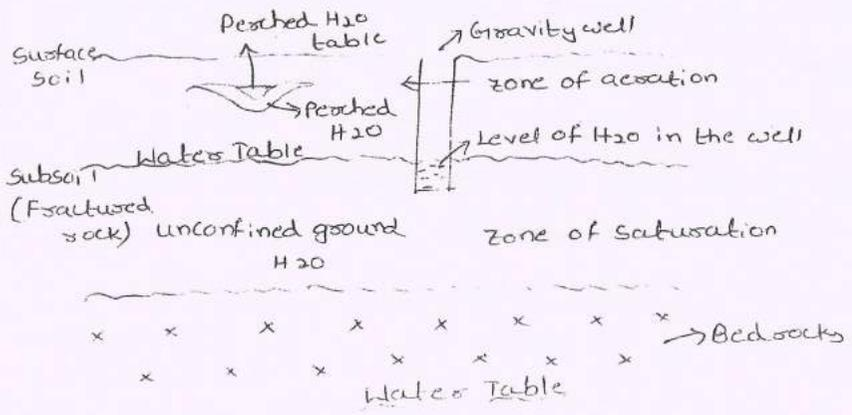 Perched H2O
table
Gravity well
Surface
Soil
zone of aeration
Perched
H2O
Level of H2O in the well
Water Table
Subsoil
(Fractured
rock)
unconfined ground
H2O
zone of saturation
x x x x x x x x
Bedrocks
x x x x x x x
Water Table